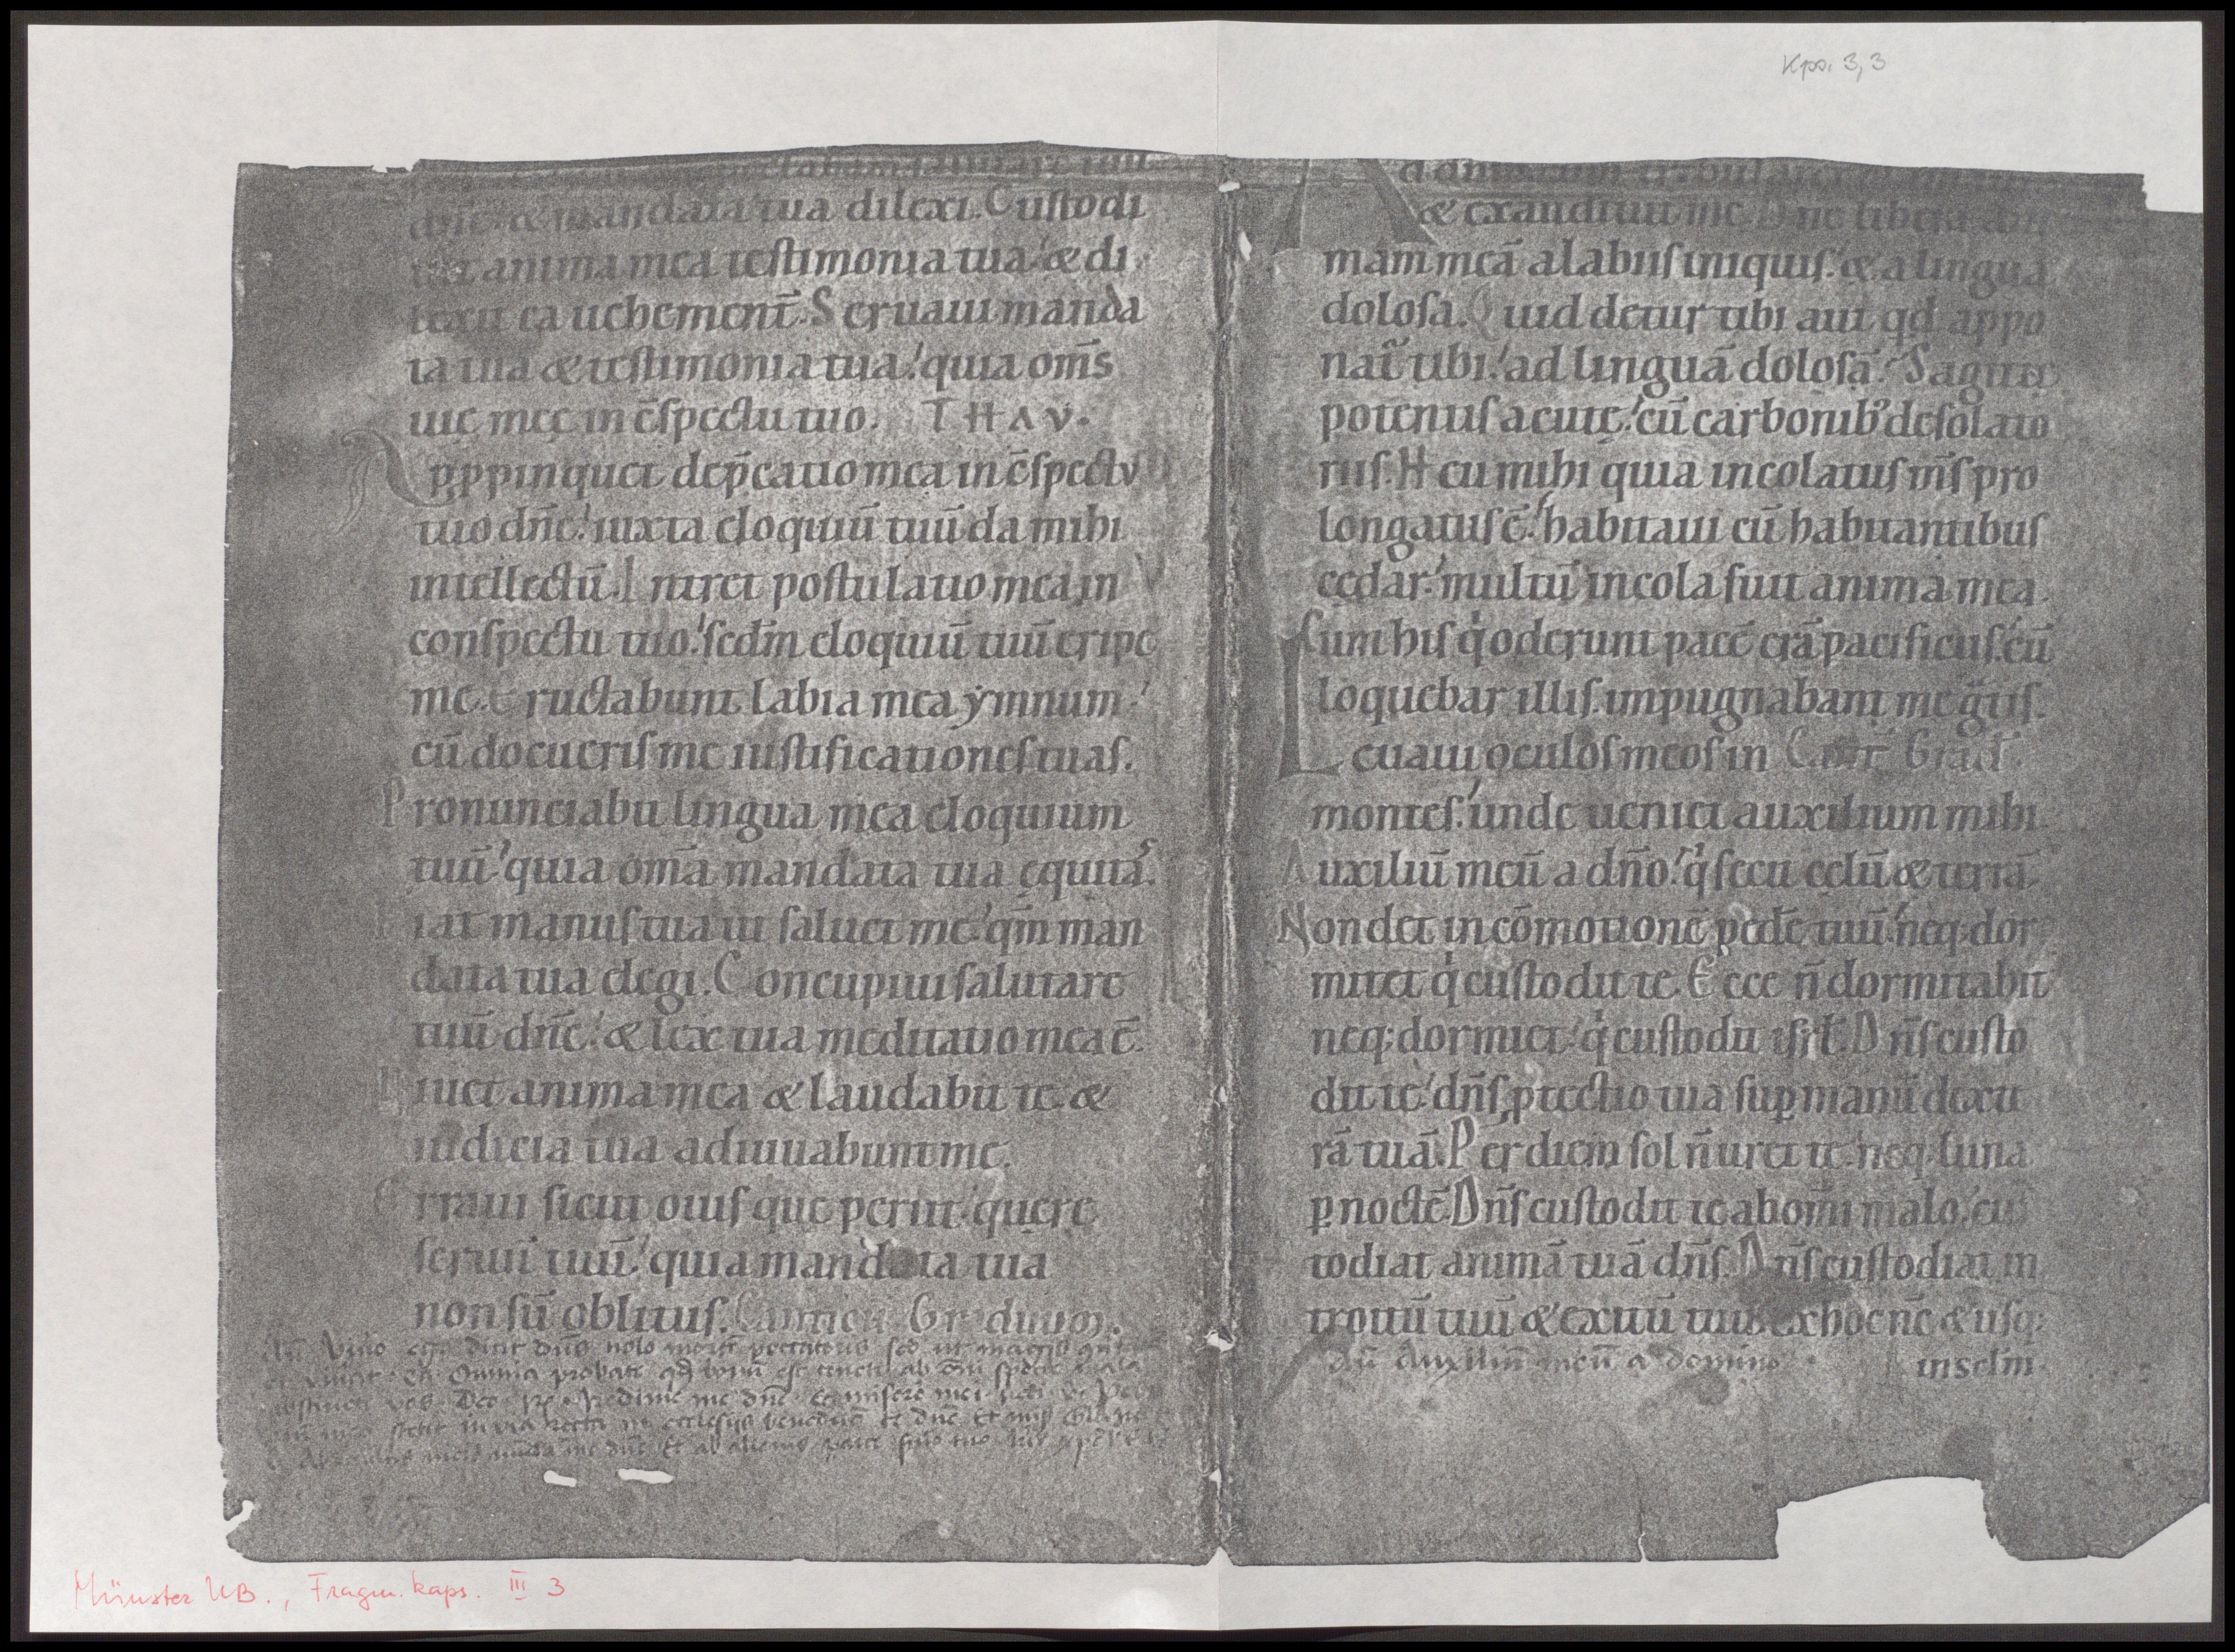 Kps. 3,3
dn̄e. & mandata tua dilexi. Custodi
uit anima mea testimonia tua: & di
lexit ea uehement̄. Seruaui manda
ta tua & testimonia tua: quia om̄s
uię meę in c̄spectu tuo. THAV.
Appropinquet dep̄catio mea in c̄spectu
tuo dn̄e: iuxta eloquiū tuū da mihi
intellectū. Intret postulatio mea in
conspectu tuo: scdm̄ eloquiū tuū eripe
me. Eructabunt labia mea ẏmnum:
cū docueris me iustificationes tuas.
Pronunciabit lingua mea eloquium
tuū: quia om̄a mandata tua ęquitas.
Fiat manus tua ut saluet me: qm̄ man
data tua elegi. Concupiui salutare
tuū dn̄e: & lex tua meditatio mea ē.
Uiuet anima mea & laudabit te: &
iudicia tua adiuuabunt me.
Erraui sicut ouis que periit: quere
seruū tuū: quia mandata tua
non sū oblitus. Canticū Graduum.
Viuo ego dicit dn̄s nolo mortē peccatoris sed ut magis
Omnia probate qd bonū est tenete ab om̄i specie mala
abstinete vos. Deo Redime me dn̄e et miserere mei
stetit in via recta in ecclesijs benedicā te dn̄e
munda me dn̄e Et ab alienis parce
Ad dn̄m cum tribularer
& exaudiuit me. Dn̄e libera ani
mam meā a labiis iniquis: & a lingua
dolosa. Quid detur tibi aut qd appo
nat̄ tibi: ad linguā dolosā. Sagittę
potentis acutę: cū carbonib; desolato
riis. Heu mihi quia incolatus m̄s pro
longatus ē: habitaui cū habitantibus
cedar: multū incola fuit anima mea.
Cum his q̇ oderunt pacē erā pacificus: cū
loquebar illis impugnabant me g̈tis.
Leuaui oculos meos in Cant̄ Grad̄.
montes: unde ueniet auxilium mihi.
Auxiliū meū a dn̄o: q̇ fecit cęlū & terrā.
Non det in cōmotionē pedē tuū: neq; dor
mitet q̇ custodit te. Ecce n̄ dormitabit
neq; dormiet: q̇ custodit isrł. Dn̄s custo
dit te: dn̄s ꝓtectio tua sup̱ manū dexte
rā tuā. Per diem sol n̄ uret te: neq; luna
p̱ noctē. Dn̄s custodit te ab om̄i malo: cus
todiat animā tuā dn̄s. Dn̄s custodiat in
troitū tuū & exitū tuū: ex hoc nc̄ & usq;
Auxiliū meū a domino in sclm̄.
Münster UB., Fragm. kaps. III 3